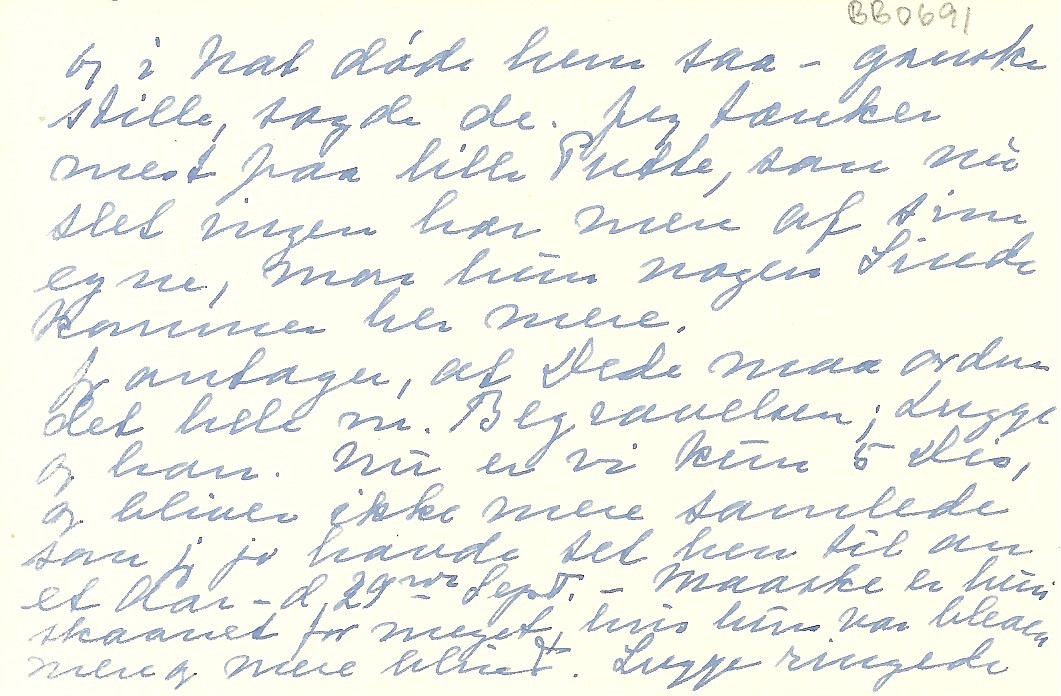 BB0691
og i Nat døde hun saa - ganske
stille, sagde de. Jeg tænker
mest paa lille Putte, som nu
slet ingen har mere af sine
egne, mon hun nogen Sinde
kommer her mere.
Jeg antager, at Dede maa ordne
det hele m. Begravelsen; Lugge
og han. Nu er vi kun 5 Dis,
og bliver ikke mere samlede
som jeg jo havde set hen til om
et Aar - d. 29de Sept. - Maaske er hun
skaanet for meget, hvis hun var bleven
mere og mere blind. Lugge ringede